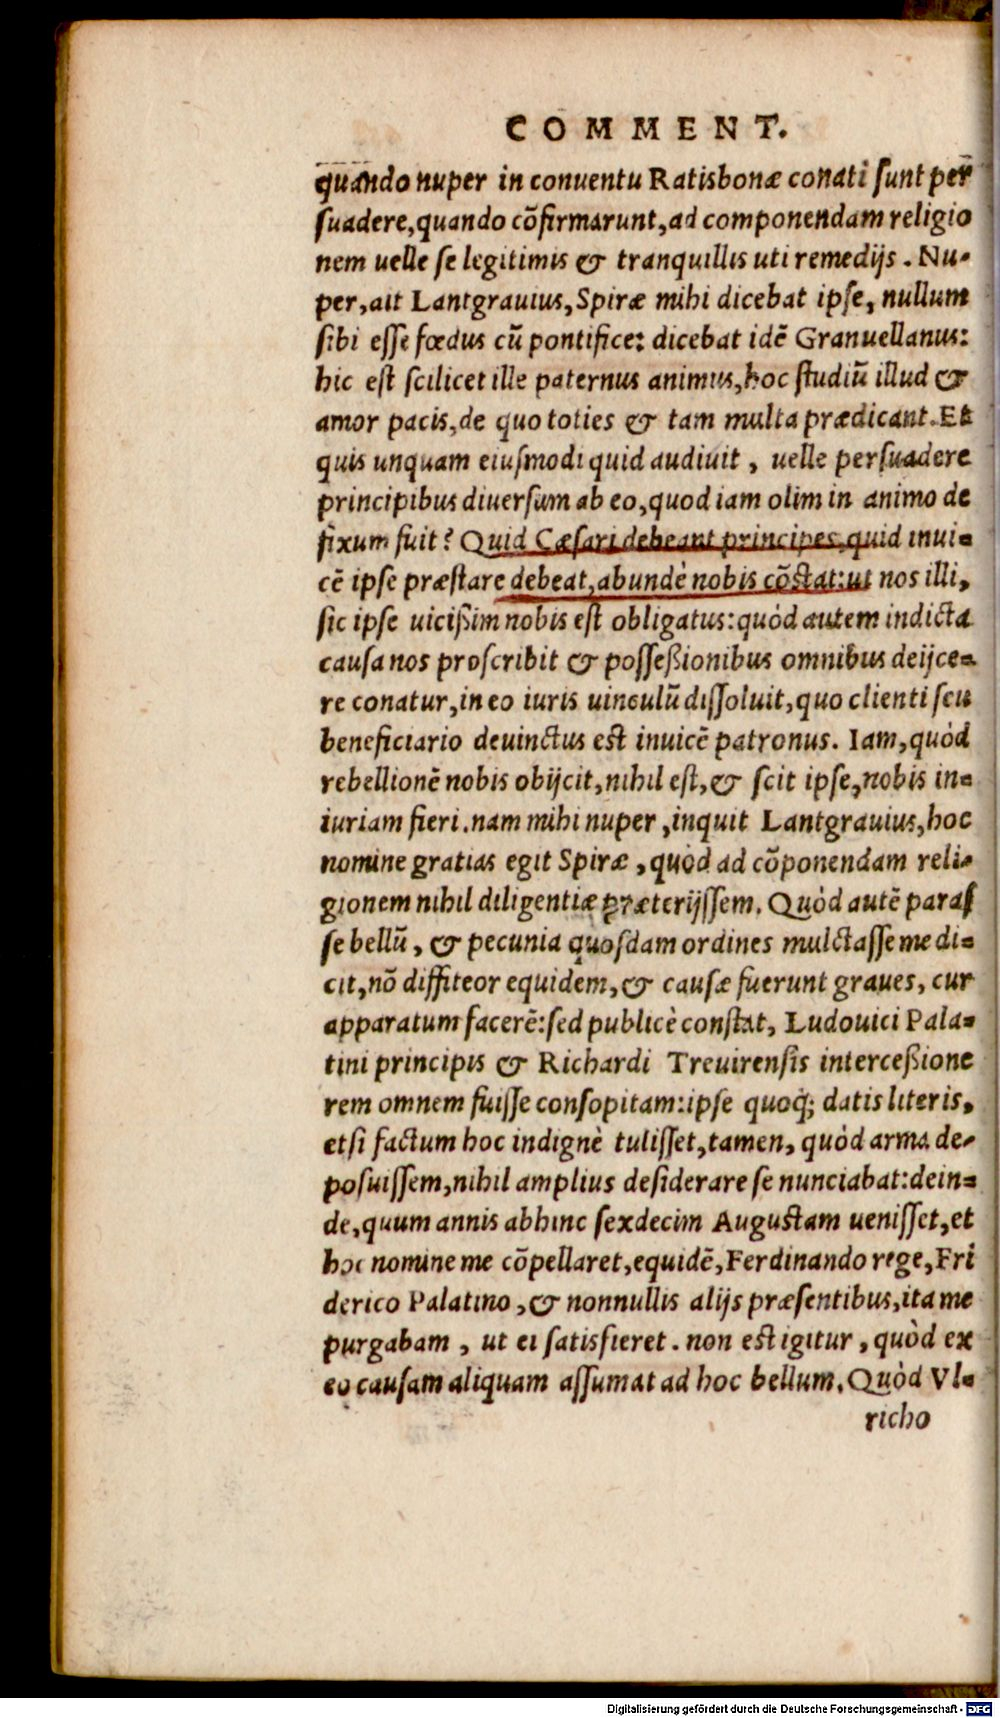 COMMENT.
quando nuper in conuentu Ratisbonæ conati ſunt per
ſuadere, quando cõfirmarunt, ad componendam religio
nem uelle ſe legitimis & tranquillis uti remedijs. Nu-
per, ait Lantgrauius, Spiræ mihi dicebat ipſe, nullum
ſibi eſſe fœdus cũ pontifice: dicebat idẽ Granuellanus:
hic eſt ſcilicet ille paternus animus, hoc ſtudiũ illud &
amor pacis, de quo toties & tam multa prædicant. Et
quis unquam eiuſmodi quid audiuit, uelle perſuadere
principibus diuerſum ab eo, quod iam olim in animo de
fixum fuit? Quid Cæſari debeant principes, quid inui-
cẽ ipſe præſtare debeat, abundè nobis cõſtat: ut nos illi,
ſic ipſe uicißim nobis eſt obligatus: quòd autem indicta
cauſa nos proſcribit & poſſeßionibus omnibus deijce-
re conatur, in eo iuris uinculũ diſſoluit, quo clienti ſeu
beneficiario deuinctus eſt inuicẽ patronus. Iam, quòd
rebellionẽ nobis obijcit, nihil eſt, & ſcit ipſe, nobis in-
iuriam fieri. nam mihi nuper, inquit Lantgrauius, hoc
nomine gratias egit Spiræ, quòd ad cõponendam reli-
gionem nihil diligentiæ præterijſſem. Quòd autẽ paraſ
ſe bellũ, & pecunia quoſdam ordines mulctaſſe me di-
cit, nõ diffiteor equidem, & cauſæ fuerunt graues, cur
apparatum facerẽ: ſed publicè conſtat, Ludouici Pala-
tini principis & Richardi Treuirenſis interceßione
rem omnem fuiſſe conſopitam: ipſe quoq; datis literis,
etſi factum hoc indignè tuliſſet, tamen, quòd arma de-
poſuiſſem, nihil amplius deſiderare ſe nunciabat: dein-
de, quum annis abhinc ſexdecim Auguſtam ueniſſet, et
hoc nomine me cõpellaret, equidẽ, Ferdinando rege, Fri
derico Palatino, & nonnullis alijs præſentibus, ita me
purgabam, ut ei ſatisfieret. non eſt igitur, quòd ex
eo cauſam aliquam aſſumat ad hoc bellum. Quòd Vl-
richo
Digitalisierung gefördert durch die Deutsche Forschungsgemeinschaft - DFG